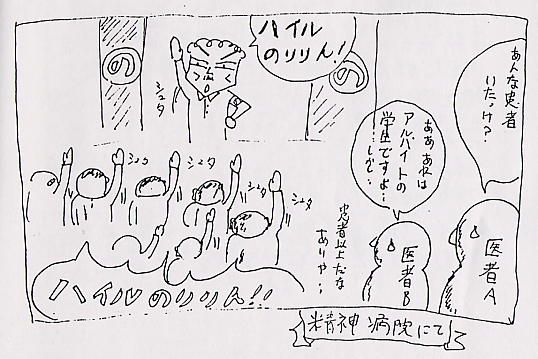 あんな患者
いたっけ?
ああ あれは
アルバイトの
学生ですよ…
しかし…
医者A
医者B
患者以上だな
ありゃ…
ハイル
のりりん!
の
の
シュタ
シュタ
シュタ
シュタ
ハイルのりりん!!
精神病院にて